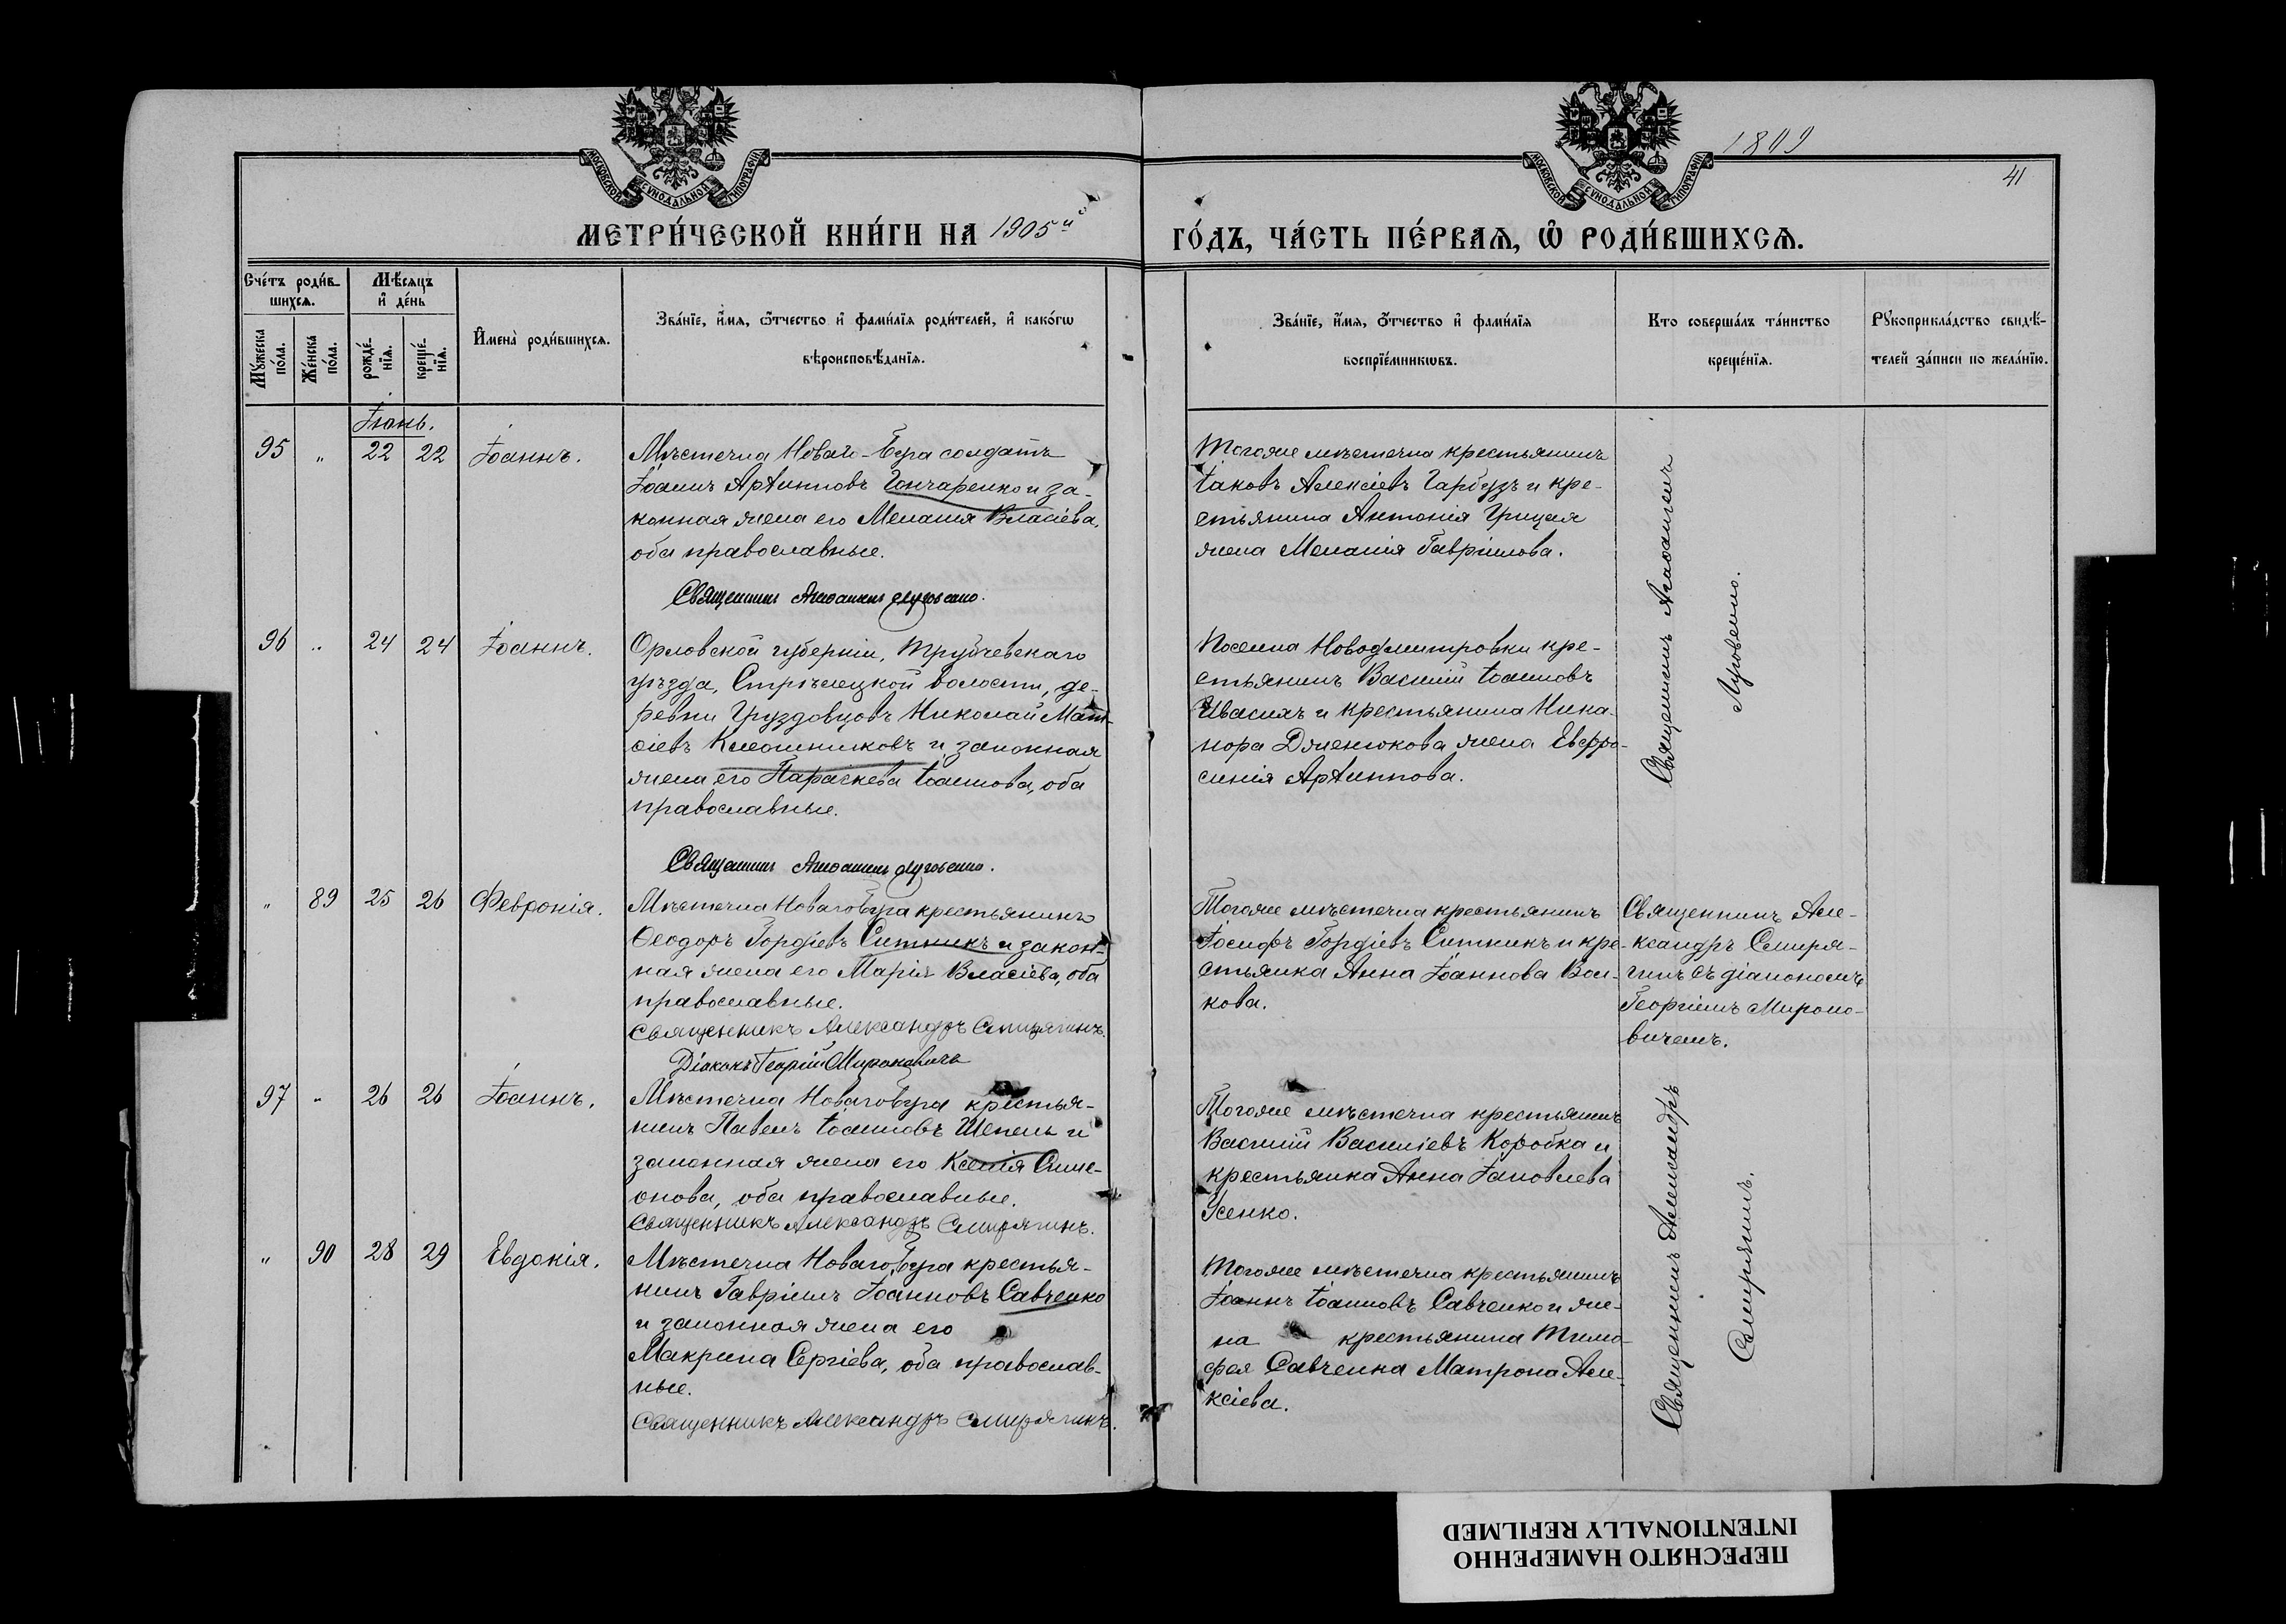 МОСКОВСКОЙ СУНОДАЛЬНОЙ ТИПОГРАФІИ
МОСКОВСКОЙ СУНОДАЛЬНОЙ ТИПОГРАФІИ
41
МЕТРИ́ЧЕСКОЙ КНИ́ГИ НА 1905й
ГО́ДЪ, ЧА́СТЬ ПЕ́РВАѦ, Ѡ҆ РОДИ́ВШИХСѦ.
Сче́тъ роди́в-
шихсѧ.
Мѣ́сѧцъ
и҆ де́нь
Мꙋ́жеска
по́ла.
Же́нска
по́ла.
рожде́-
нїѧ.
креще́-
нїѧ.
И҆мена̀ роди́вшихсѧ.
Зва́нїе, и҆́мѧ, ѻ҆́тчество и҆ фами́лїѧ роди́телей, и҆ како́гѡ
вѣроисповѣ́данїѧ.
Зва́нїе, и҆́мѧ, ѻ҆́тчество и҆ фами́лїѧ
воспрїе́мникѡвъ.
Кто соверша́лъ та́инство
креще́нїѧ.
Рꙋкоприкла́дство свидѣ́-
телей за́писи по жела́нїю.
Іюнь.
95 „ 22 22 Іоаннъ.
Мѣстечка Новаго-Буга солдатъ
Іоаннъ Архипповъ Гончаренко и за-
конная жена его Меланія Власіева,
оба православные.
Священникъ Луговенко.
Тогоже мѣстечка крестьянинъ
Іаковъ Алексіевъ Гарбузъ и кре-
стьянина Антонія Грицая
жена Меланія Гавріилова.
Священникъ
Луговенко.
96 „ 24 24 Іоаннъ.
Орловской губерніи, Трубчевскаго
уѣзда, Стрѣлецкой волости, де-
ревни Груздовцовъ Николай Мат-
ѳіевъ Клюшниковъ и законная
жена его Параскева Іоаннова, оба
православные.
Священникъ Луговенко.
Поселка Новодмитровки кре-
стьянинъ Василій Іоанновъ
Ивасихъ и крестьянина Ника-
нора жена Евфро-
синія Архиппова.
„ 89 25 26 Февронія.
Мѣстечка Новаго Буга крестьянинъ
Ѳеодоръ Гордіевъ Ситникъ и закон-
ная жена его Марія Власіева, оба
православные.
Священникъ Александръ Смирягинъ.
Діаконъ Георгій Мироновичъ
Тогоже мѣстечка крестьянинъ
Іосифъ Гордіевъ Ситникъ и кре-
стьянка Анна Іоаннова Вол-
кова.
Священникъ Але-
ксандръ Смиря-
гинъ съ діакономъ
Георгіемъ Мироно-
вичемъ.
97 „ 26 26 Іоаннъ.
Мѣстечка Новаго Буга крестья-
нинъ Павелъ Іоанновъ Шепель и
законная жена его Ксенія Симе-
онова, оба православные.
Священникъ Александръ Смирягинъ.
Тогоже мѣстечка крестьянинъ
Василій Василіевъ Коробка и
крестьянка Анна Іаковлева
Усенко.
Священникъ Александръ
Смирягинъ.
„ 90 28 29 Евдокія.
Мѣстечка Новаго Буга крестья-
нинъ Гавріилъ Іоанновъ Савченко
и законная жена его
Макрина Сергіева, оба православ-
ные.
Священникъ Александръ Смирягинъ.
Тогоже мѣстечка крестьянинъ
Іоаннъ Іоанновъ Савченко и же-
на крестьянина Тимо-
фея Савченка Матрона Але-
ксіева.
ПЕРЕСНЯТО НАМЕРЕННО
INTENTIONALLY REFILMED